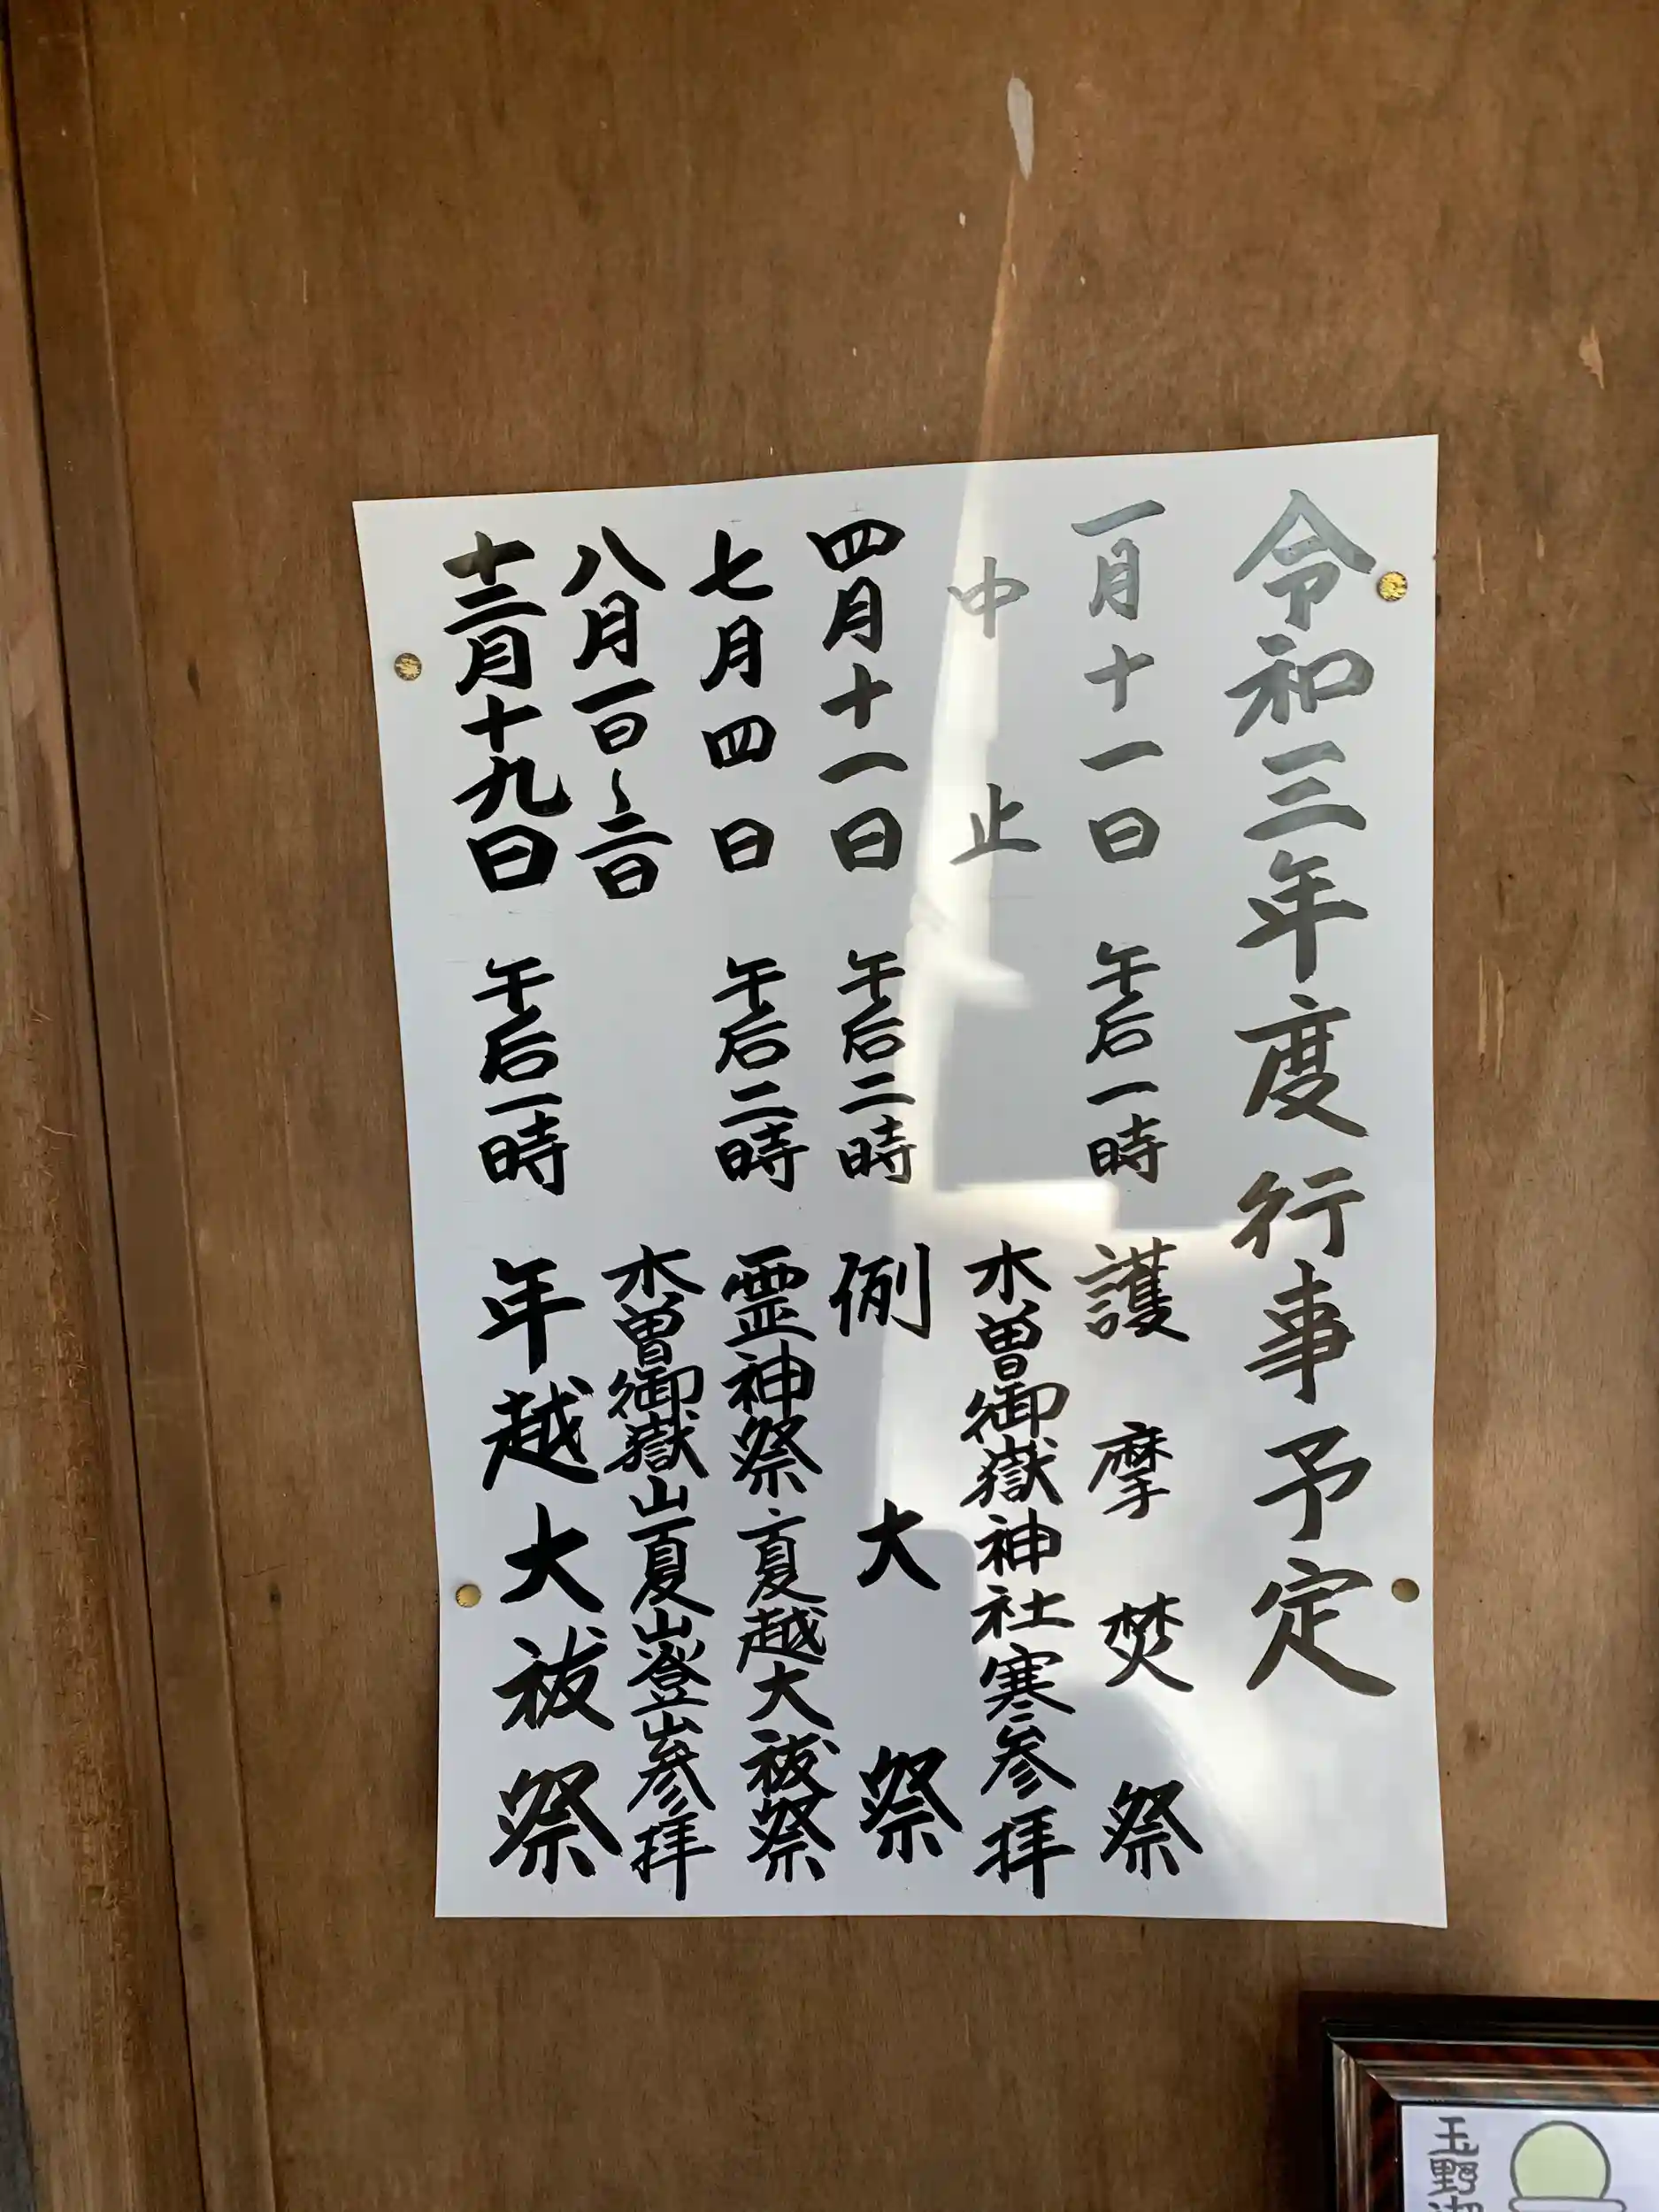 令和三年度行事予定
一月十一日 午后一時 護摩焚祭
中止 木曽御嶽神社寒参拝
四月十一日 午后二時 例大祭
七月四日 午后二時 霊神祭・夏越大祓祭
八月一日~二日 木曽御嶽山夏山登山参拝
十二月十九日 午后一時 年越大祓祭
玉野